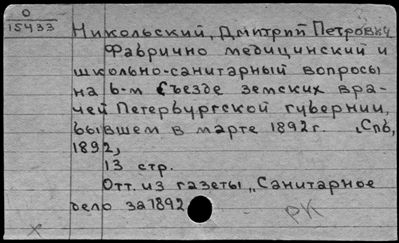 О
15433
Никольский, Дмитрий Петрович
Фабрично медицинский и
школьно-санитарный вопросы
на 6-м съезде земских вра-
чей Петербургской губернии,
бывшем в марте 1892 г. „Спб,
1892„
13 стр.
Отт. из газеты „Санитарное
дело за 1892
РК
х